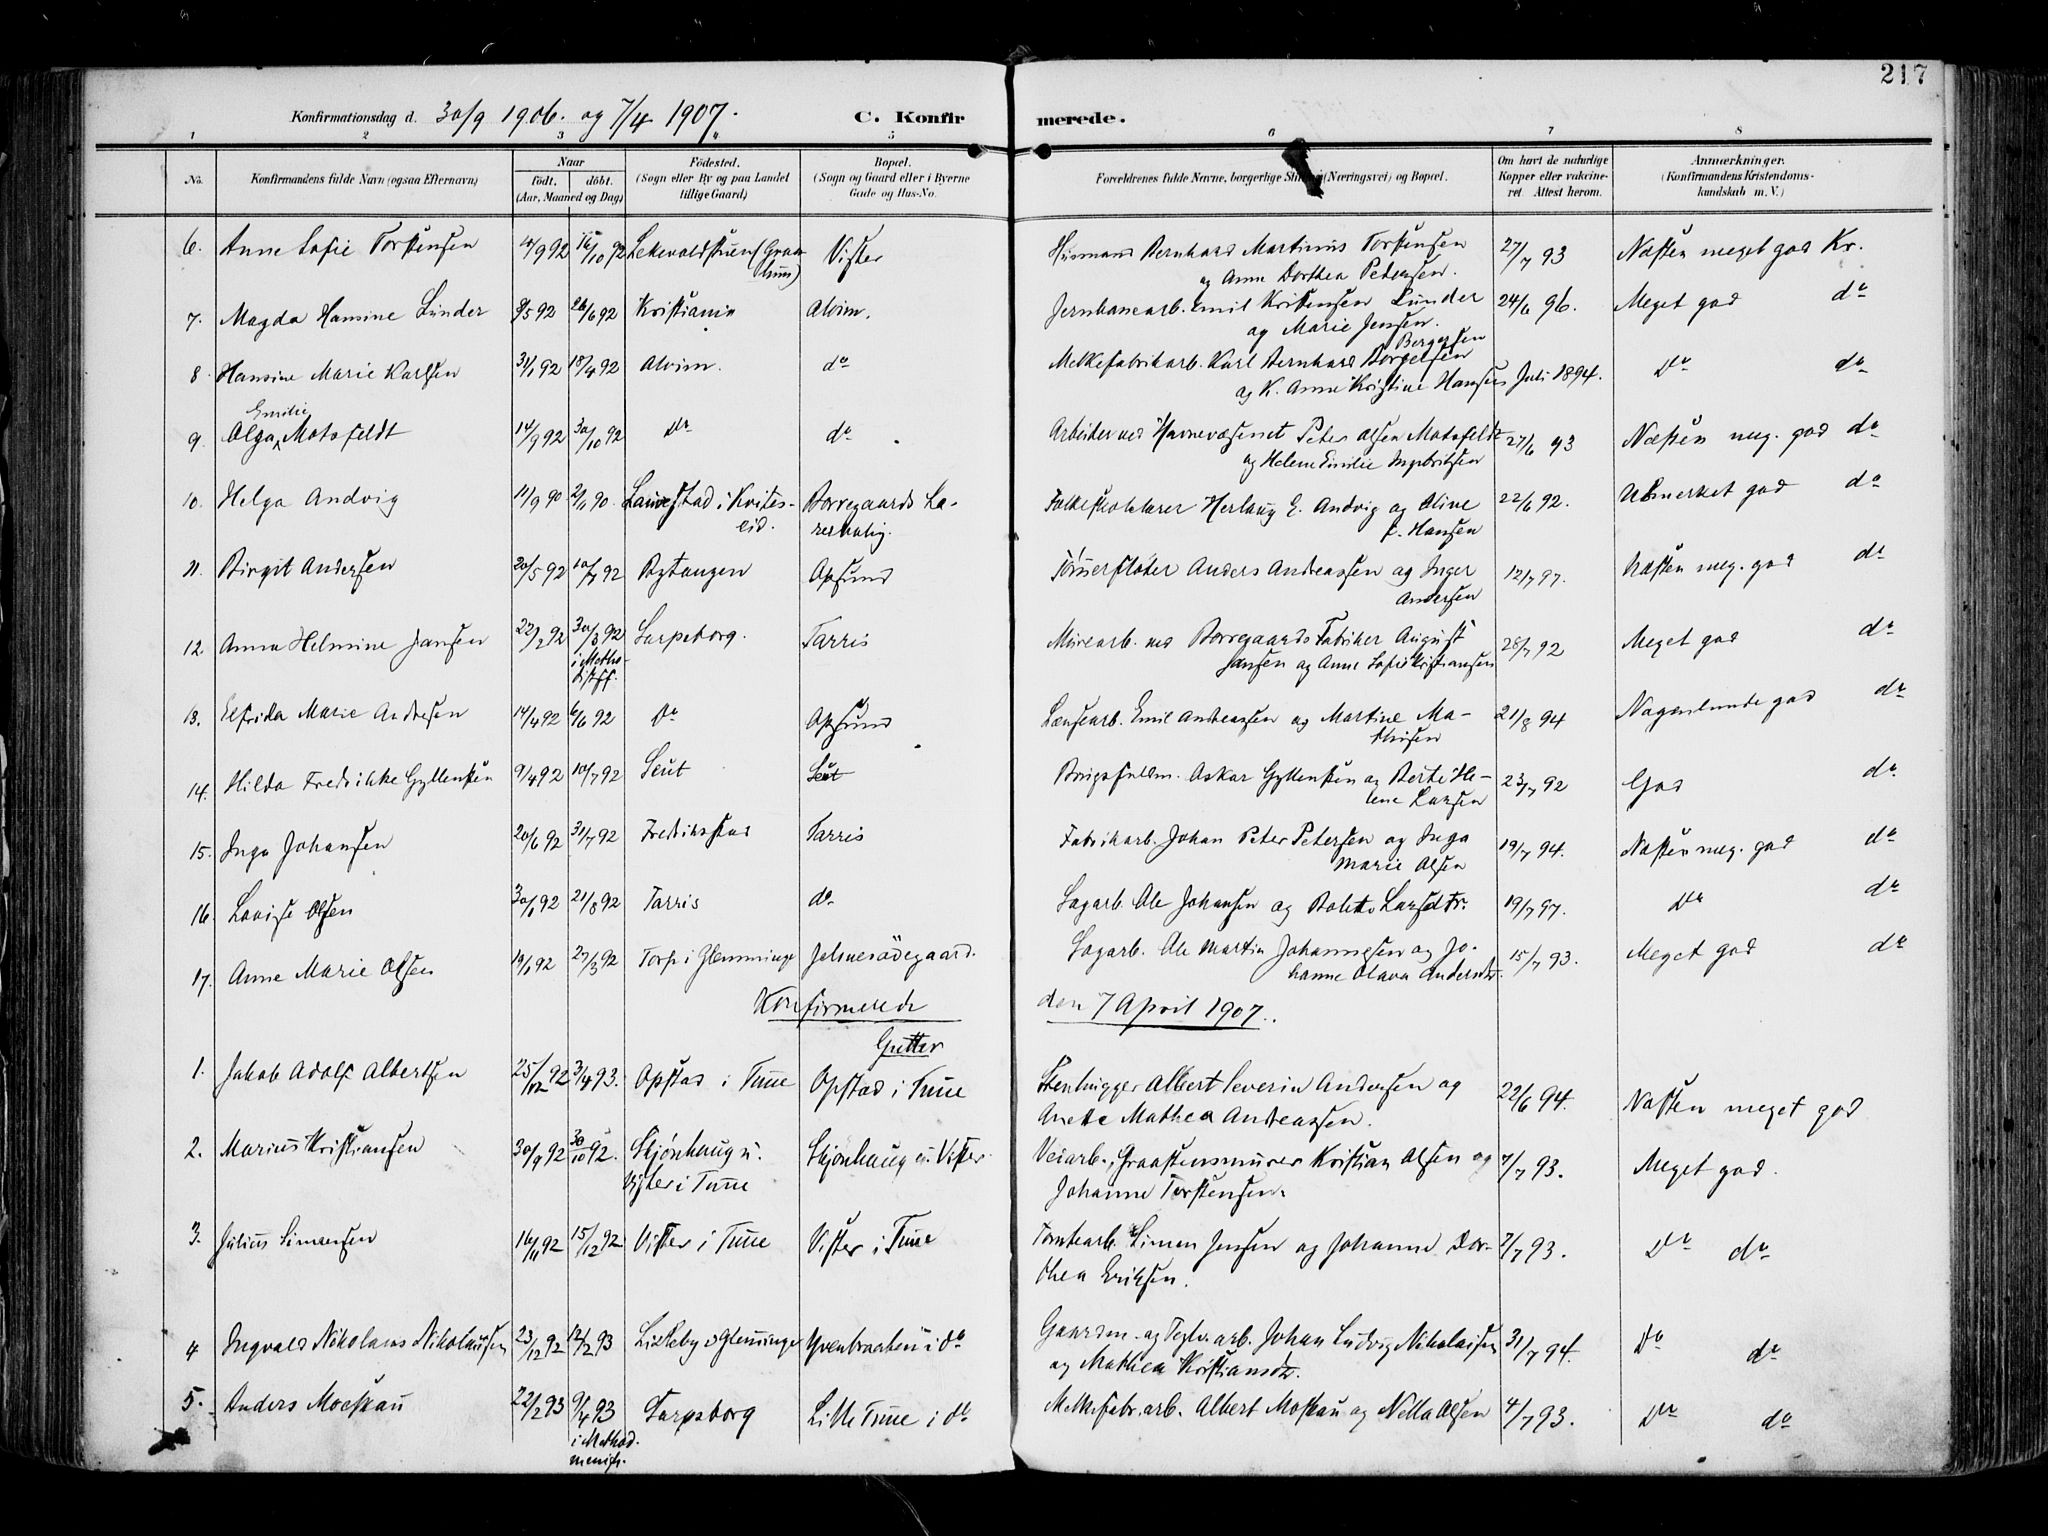 217
Konfirmationsdag d. 30/9 1906. og 7/4 1907.
C. Konfirmerede.
1 2 3 4 5 6 7 8
No. Konfirmandens fulde Navn (ogsaa Efternavn) Naar födt. döbt. (Aar, Maaned og Dag) Födested. (Sogn eller By og paa Landet tillige Gaard) Bopæl. (Sogn og Gaard eller i Byerne Gade og Hus-No. Forældrenes fulde Navne, borgerlige Stilling (Næringsvei) og Bopæl. Om havt de naturlige Kopper eller vakcineret. Attest herom. Anmærkninger. (Konfirmandens Kristendomskundskab m. V.)
6. Anne Sofie Torstensen 4/9 92 16/10 92 Lekevoldstuen (Graahus) Vister Husmand Bernhard Martinus Torstensen 27/7 93 Næsten meget god Kr.
og Anne Dorthea Petersen.
7. Magda Hansine Lunder 9/5 92 26/6 92 Kristiania Alvim. Jernbanearb. Emil Kristensen Lunder 24/6 96. Meget god do
og Marie Jensen.
8. Hansine Marie Karlsen 31/1 92 18/4 92 Alvim. do Melkefabrikarb. Karl Bernhard Borgersen Juli 1894. Do do
Bergersen
og K. Anne Kristine Hansen
Emilie
9. Olga Motsfeldt 14/9 92 30/10 92 Do do Arbeider ved Havnevæsenet Peter Olsen Motsfeldt 27/6 93 Næsten meg. god do
og Helene Emilie Ingebritsen
10. Helga Andvig 11/9 90 2/11 90. i Kviteseid. Borregaards Lærerbolig. Folkeskolelærer Herlaug E. Andvig og Oline 22/6 92. Udmerket god do
C. Hansen
11. Birgit Andersen 20/5 92 10/7 92 Opsund Tømmerfløter Anders Andreassen og Inger 12/7 97. Næsten meg. god do
Andersen
12. Anna Helmine Jansen 22/2 92 30/3 92 Sarpsborg. Tarris Murearb. ved Borregaards Fabriker August 28/7 92 Meget god do
i Methodistff.
Jansen og Anne Sofie Kristiansen
13. Elfrida Marie Andresen 14/4 92 6/6 92 Do Opsund Lænsearb. Emil Andreassen og Martine Ma- 21/8 94 Nogenlunde god do
thisen
14. Hilda Fredrikke Gyllensten 9/4 92 10/7 92 Seut Seut Brigsfuldm. Askar Gyllensten og Berte He- 23/7 92 God do
lene Larsen
15. Inga Johansen 20/6 92 31/7 92 Fredrikstad Tarris Fabrikarb. Johan Peter Petersen og Inga 19/7 94. Næsten meg. god do
Marie Olsen
16. Lovise Olsen 30/1 92 21/8 92 Tarris do. Sagarb. Ole Johansen og Bolette Larsdtr. 19/7 97. Do do
17. Anne Marie Olsen 19/1 92 27/3 92 Torp i Glemminge Jelsnesödegaard. Sagarb. Ole Martin Johannesen og Jo- 15/7 93. Meget god do
hanne Olava Andersdtr.
Konfirmerede den 7 April 1907.
Gutter
1. Jakob Adolf Albertsen 25/12 92 3/4 93. Opstad i Tune Opstad i Tune Stenhugger Albert Severin Andersen og 22/6 94. Næsten meget god
Anette Mathea Andreassen.
2. Marius Kristiansen 30/9 92 30/10 92. Skjönhaug u. Skjönhaug u. Vister. Veiarb., Graastensmurer Kristian Olsen og 7/7 93. Meget god.
Vister i Tune Johanne Torstensen.
3. Julius Simensen 16/11 92 15/12 92 Vister i Tune Vister i Tune Tomtearb. Simen Jensen og Johanne Dor- 7/7 93. Do do
thea Eriksen.
4 Ingvald Nikolaus Nikolausen 23/12 92 12/2 93 Lisleby i Glemminge i do Gaardm. og Teglv.arb. Johan Ludvig Nikolaisen 31/7 94. Do do
og Mathea Kristiansdtr.
5. Anders Moeskau 22/2 93 9/4 93 Sarpsborg Lille Tune i do Melkefabr.arb. Albert Moskau og Netta Olsen 4/7 93. Do do
i Method.
menigh.